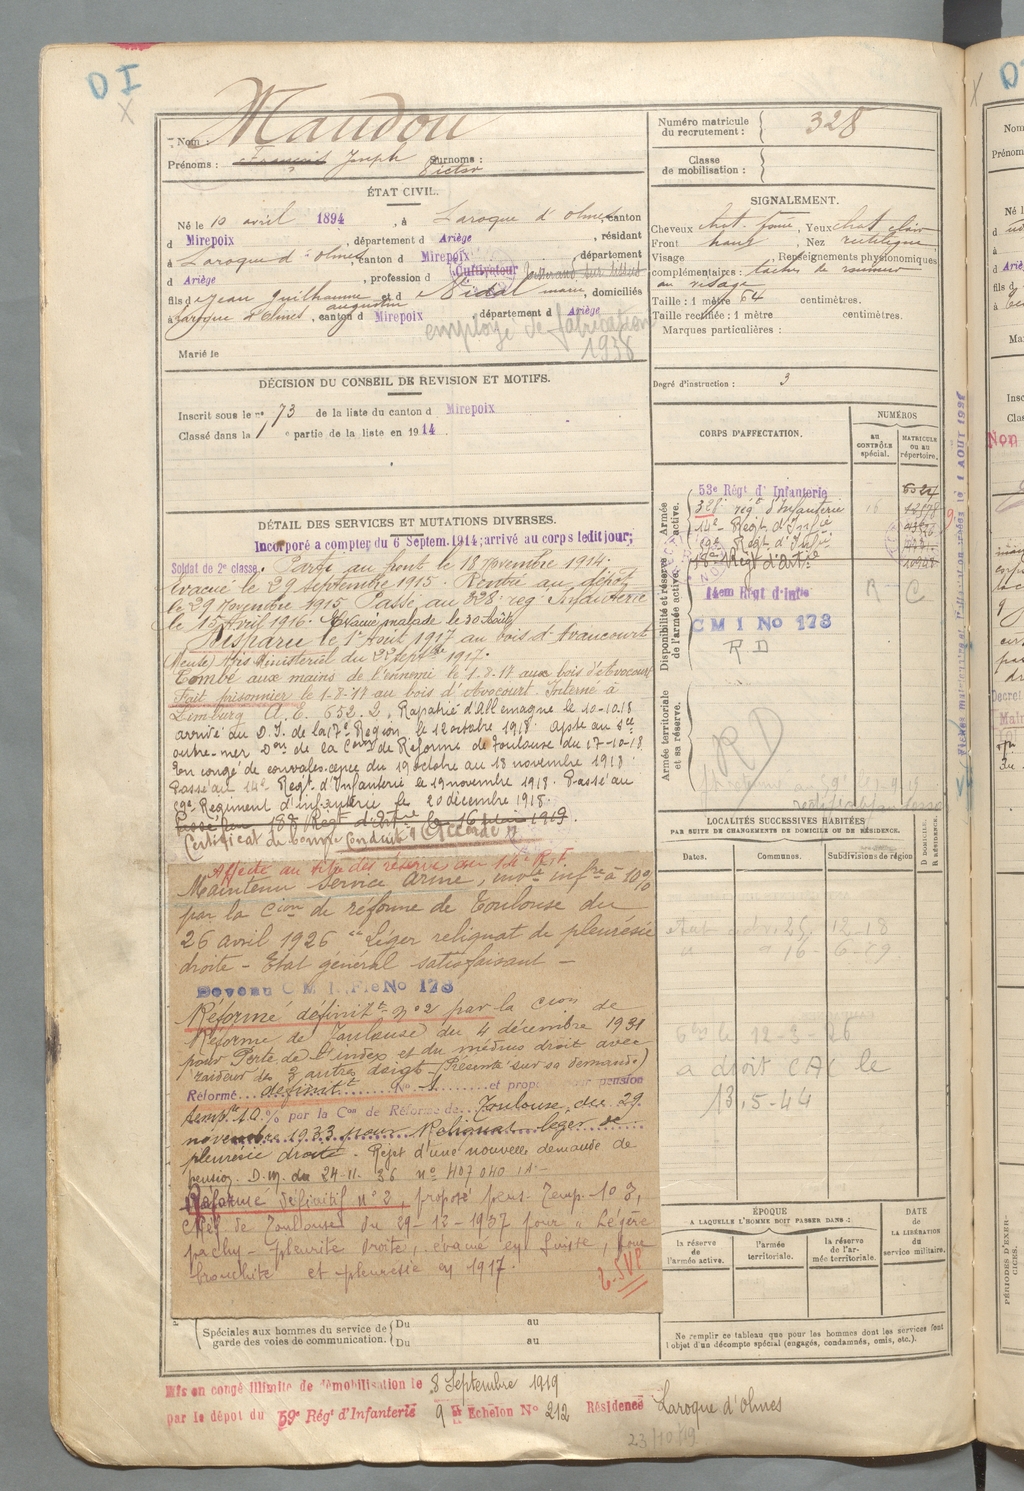 DI
Nom : Maudou
Prénoms : Joseph Victor Surnoms :
ÉTAT CIVIL.
Né le 10 avril 1894, à Laroque d'Olmes, canton
d Mirepoix, département d Ariège, résidant
à Laroque d'Olmes, canton d Mirepoix, département
d Ariège, profession d Cultivateur
fils d Jean Guilhaume Augustin et d Vidal, domiciliés
à Laroque d'Olmes, canton d Mirepoix, département d Ariège
employé de fabrication
1938
Marié le
DÉCISION DU CONSEIL DE REVISION ET MOTIFS.
Inscrit sous le n° 73 de la liste du canton d Mirepoix
Classé dans la 1 e partie de la liste en 1914
DÉTAIL DES SERVICES ET MUTATIONS DIVERSES.
Incorporé a compter du 6 Septem. 1914; arrivé au corps ledit jour;
Soldat de 2e classe. Passé au front le 18 Novembre 1914.
Evacué le 29 septembre 1915. Rentré au dépôt
le 29 Novembre 1915. Passé au 328e rég Infanterie
le 15 Avril 1916. Evacué malade le 30 Août
Disparu le 1er Août 1917 au bois d'Avaucourt
(Meuse) Avis Ministériel du 22 septbre 1917.
Tombé aux mains de l'ennemi le 1-8-17 aux bois d'Avocourt
Fait prisonnier le 1-8-17 au bois d'Avocourt. Interné à
Limburg A.E. 652.2. Rapatrié d'Allemagne le 10-10-18
arrivé au D.I. de la 17e Région le 12 octobre 1918. Apte au sce
outre-mer Don de la Con de Réforme de Toulouse du 17-10-18
En congé de convalescence du 19 octobre au 18 novembre 1918.
Passé au 14e Regt d'Infanterie le 19 novembre 1918. Passé au
59e Régiment d'infanterie le 20 décembre 1918.
Passé au 18e Regt d'Artie le 16 1919.
Certificat de bonne Conduite "Accordé"
Affecté au titre des réserves au 14e R.I.
Maintenu service armé, invté infre à 10%
par la Cion de réforme de Toulouse du
26 avril 1926 "Léger reliquat de pleurésie
droite - Etat général satisfaisant -
Devenu C M I. F. le No 178
Réformé définitt n°2 par la Cion de
Réforme de Toulouse du 4 décembre 1931
pour Perte de l'index et du médius droit avec
raideur des 3 autres doigts (Présenté sur sa demande)
Réformé définitt No 1 et propo pour pension
temp.re 10.% par la Con de Réforme de Toulouse du 29
novembre 1933 pour Reliquat léger de
pleurésie droite. Rejet d'une nouvelle demande de
pension. D.M. du 24-11-36 n° 407040
Réformé Définitif n°2, proposé pens. Temp. 10%,
de Toulouse du 29-12-1937 pour "Légère
pachy-pleurite droite, évacué en Suisse, pour
bronchite et pleurésie en 1917.
T.SVP
Spéciales aux hommes du service de garde des voies de communication. { Du au
Du au
Mis en congé illimité de démobilisation le 8 Septembre 1919
par le dépot du 59e Régt d'Infanterie 9e Echelon No 212 Résidence Laroque d'Olmes
23/10/19
Numéro matricule du recrutement : 328
Classe de mobilisation :
SIGNALEMENT.
Cheveux chat. foncé, Yeux chat clair
Front haut, Nez rectiligne
Visage , Renseignements physionomiques
complémentaires : taches de rousseur
au visage
Taille : 1 mètre 64 centimètres.
Taille rectifiée : 1 mètre centimètres.
Marques particulières :
Degré d'instruction : 3
CORPS D'AFFECTATION.
NUMÉROS
au CONTRÔLE spécial.
MATRICULE ou au répertoire.
Disponibilité et réserve de l'armée active.
Armée active.
53e Régt d'Infanterie
328e régt d'Infanterie
14e Régt d'Infie
59e Régt d'Infie
18e Régt d'Artie
14em Régt d'Infie
R C
C M I No 178
R D
Armée territoriale et sa réserve.
RD
LOCALITÉS SUCCESSIVES HABITÉES
PAR SUITE DE CHANGEMENTS DE DOMICILE OU DE RÉSIDENCE.
Dates.
Communes.
Subdivisions de région
D DOMICILE. R RÉSIDENCE.
25-12-18
16-6-19
le 12-3-26
a droit CAC le
13.5-44
ÉPOQUE
A LAQUELLE L'HOMME DOIT PASSER DANS :
DATE DE LA LIBÉRATION du service militaire.
la réserve de l'armée active.
l'armée territoriale.
la réserve de l'armée territoriale.
Ne remplir ce tableau que pour les hommes dont les services font
l'objet d'un décompte spécial (engagés, condamnés, omis, etc.).
PÉRIODES D'EXERCICES.